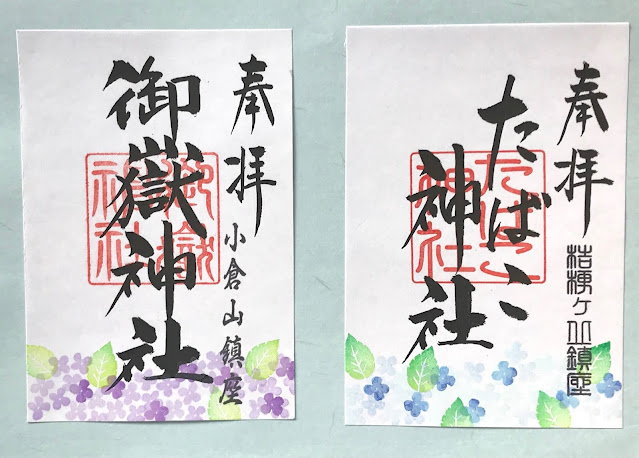 奉拝
小倉山鎮座
御嶽神社
御嶽神社
奉拝
桔梗ヶ丘鎮座
たばこ
神社
たばこ
神社